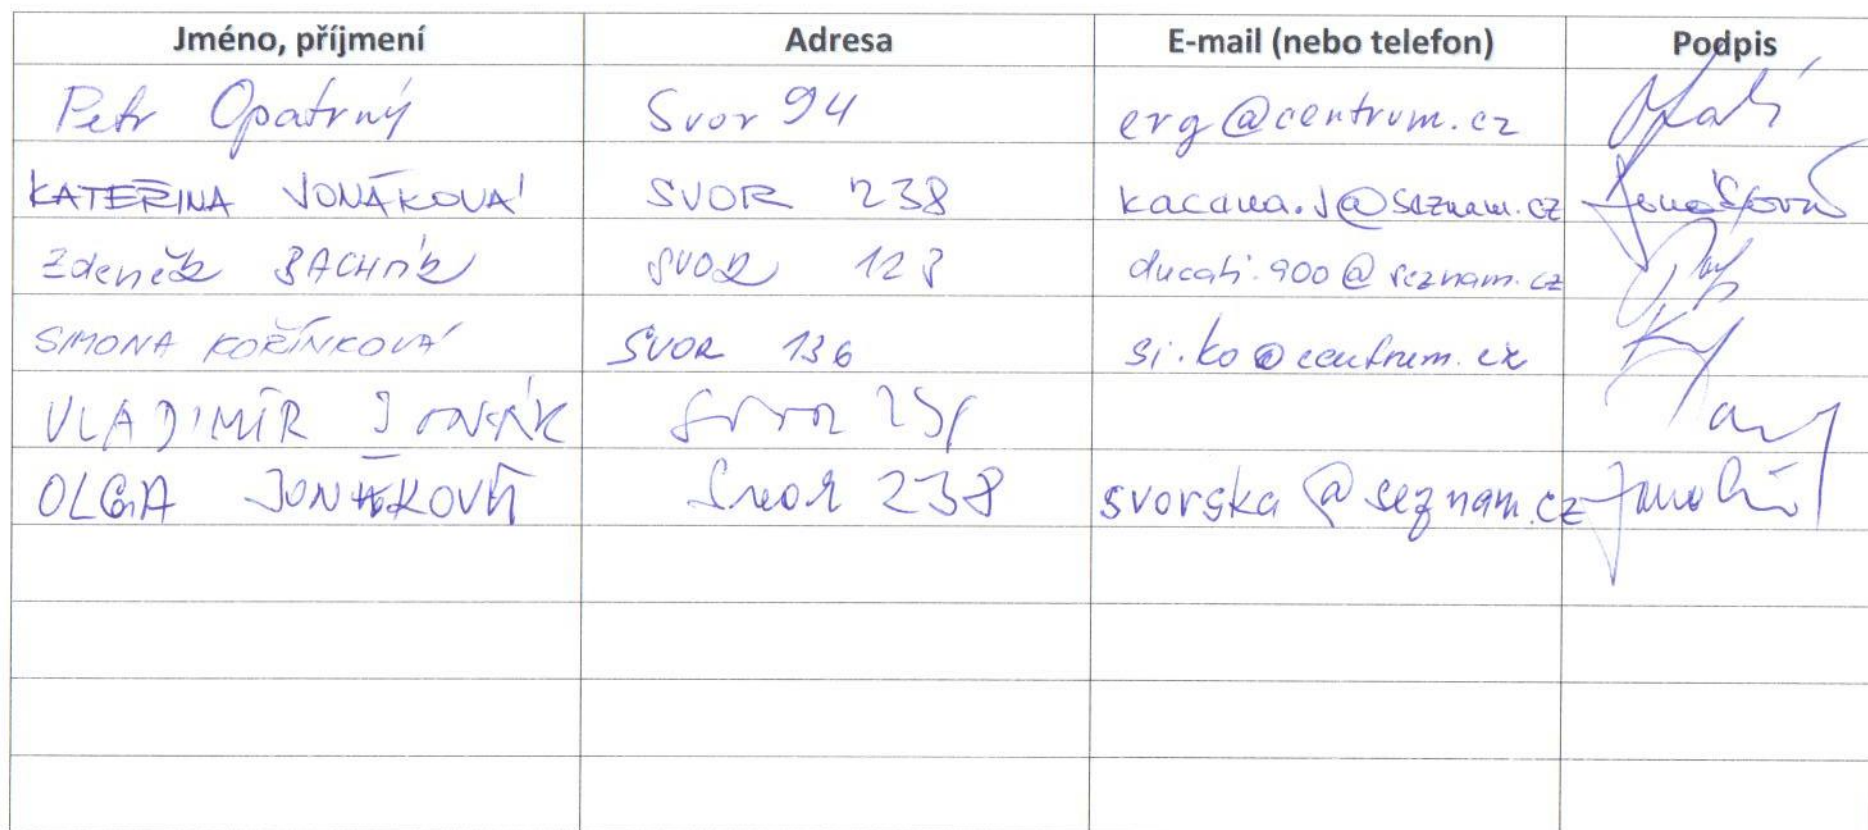 Jméno, příjmení Adresa E-mail (nebo telefon) Podpis
Petr Opatrný Svor 94 erg@centrum.cz
KATEŘINA JONÁKOVÁ SVOR 238 kacana.j@seznam.cz
Zdeněk BACHNÍK SVOR 128 ducati.900@seznam.cz
SIMONA KOŘÍNKOVÁ SVOR 136 si.ko@centrum.cz
VLADIMÍR JONÁK Svor
OLGA JONÁKOVÁ Svor 238 svorska@seznam.cz